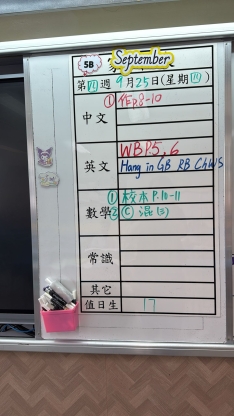 5B September
第四週 9月25日(星期四)
中文 ① 作P.8-10
英文 WBP5,6
Hang in GB RB ChWS
數學 ① 校本 P.10-11
② (C) 混(三)
常識
其它
值日生 17